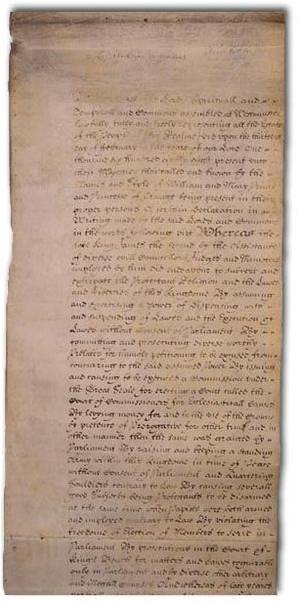 Whereas the Lords Spirituall and
Temporall and Commons assembled at Westminster
lawfully fully and freely representing all the Estates
of the People of this Realme did upon the thirteenth
day of February in the yeare of our Lord One
thousand six hundred eighty eight present unto
their Majesties then called and known by the
Names and Stile of William and Mary Prince
and Princesse of Orange being present in their
proper persons A certain Declaration in
Writing made by the said Lords and Commons
in the words following viz Whereas the
late King James the second by the Assistance
of diverse evill Councillors Judges and Ministers
imployed by him did endeavour to subvert and
extirpate the Protestant Religion and the Lawes
and Liberties of this Kingdome By assuming
and exercising a power of dispensing with
and suspending of Lawes and the Execution of
Lawes without Consent of Parliament By
committing and prosecuting diverse worthy
Prelates for humbly petitioning to be excused from
concurring to the said assumed power By issuing
and causing to be executed a Commission under
the Great Seale for erecting a Court called the
Court of Commissioners for Ecclesiasticall Causes
By levying money for and to the use of the Crowne
by pretence of Prerogative for other time and in
other manner then the same was granted by
Parliament By raising and keeping a standing
Army within this Kingdome in time of Peace
without Consent of Parliament and Quartering
Souldiers contrary to Law By causing severall
good Subjects being Protestants to be disarmed
at the same time when Papists were both armed
and imployed contrary to Law By violating the
freedome of Election of Members to serve in
Parliament By prosecutions in the Court of
Kings Bench for matters and causes cognizable
only in Parliament and by diverse other arbitrary
and illegall courses And whereas of late yeares